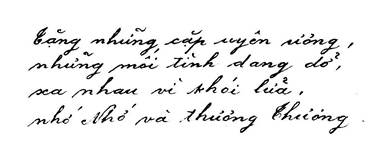 Tặng những cặp uyên ương,
những mối tình dang dở,
xa nhau vì khói lửa,
nhớ Nhớ và thương Thương.